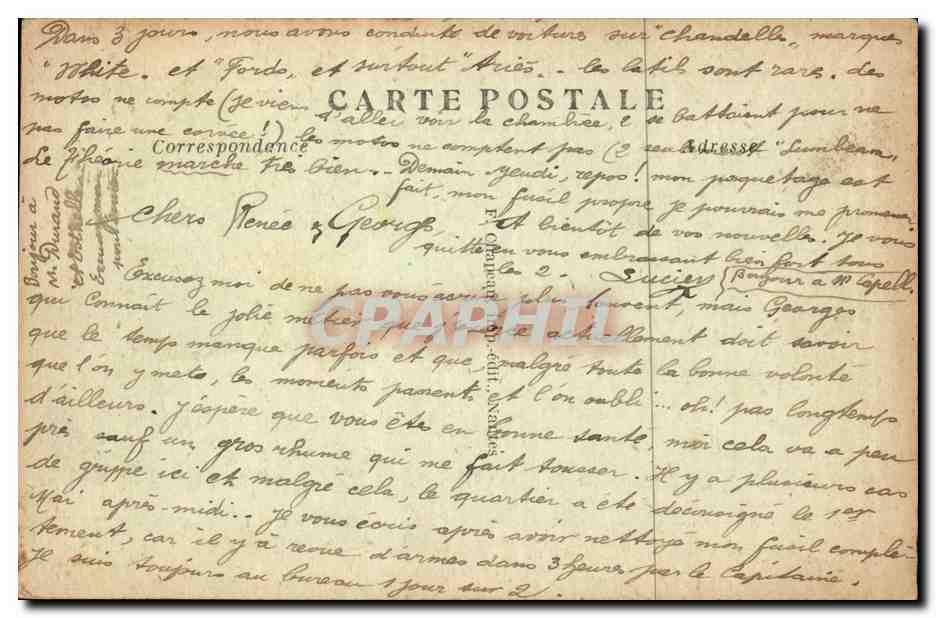 Dans 3 jours, nous avons conduite de voitures sur "chandelle, marques
"White. et "Fords, et surtout "Ariès.. les latil sont rares. des
motos ne compte (je viens
CARTE POSTALE
d'aller voir la chambrée, 2 se battaient pour ne
pas faire une corvée!) les motos ne comptent pas (2 "Sunbeam,,
Correspondance
Adresse
La théorie marche très bien.. Demain jeudi, repos! mon paquetage est
fait, mon fusil propre je pourrais me promener
Bonjour à
M. Durand
et
chers Renée & George,
Et bientôt de vos nouvelles. Je vous
quitte en vous embrassant bien fort tous
les 2. Lucien
Bonjour à Mr Capell.
F. Chapeau, Imp.-édit., Nantes
CPAPHIL
Excusez moi de ne pas vous écrire plus souvent, mais Georges
qui connait le joli métier que j'exerce actuellement doit savoir
que le temps manque parfois et que, malgré toute la bonne volonté
que l'on y mets, les moments passent et l'on oubli... oh! pas longtemps
d'ailleurs. J'espère que vous êtes en bonne santé, moi cela va a peu
près sauf un gros rhume qui me fait tousser. Il y a plusieurs cas
de grippe ici et malgré cela, le quartier a été déconsigné le 1er
Mai après-midi.. Je vous écris après avoir nettoyé mon fusil complè-
tement, car il y a revue d'armes dans 3 heures par le Capitaine.
Je suis toujours au bureau 1 jour sur 2.